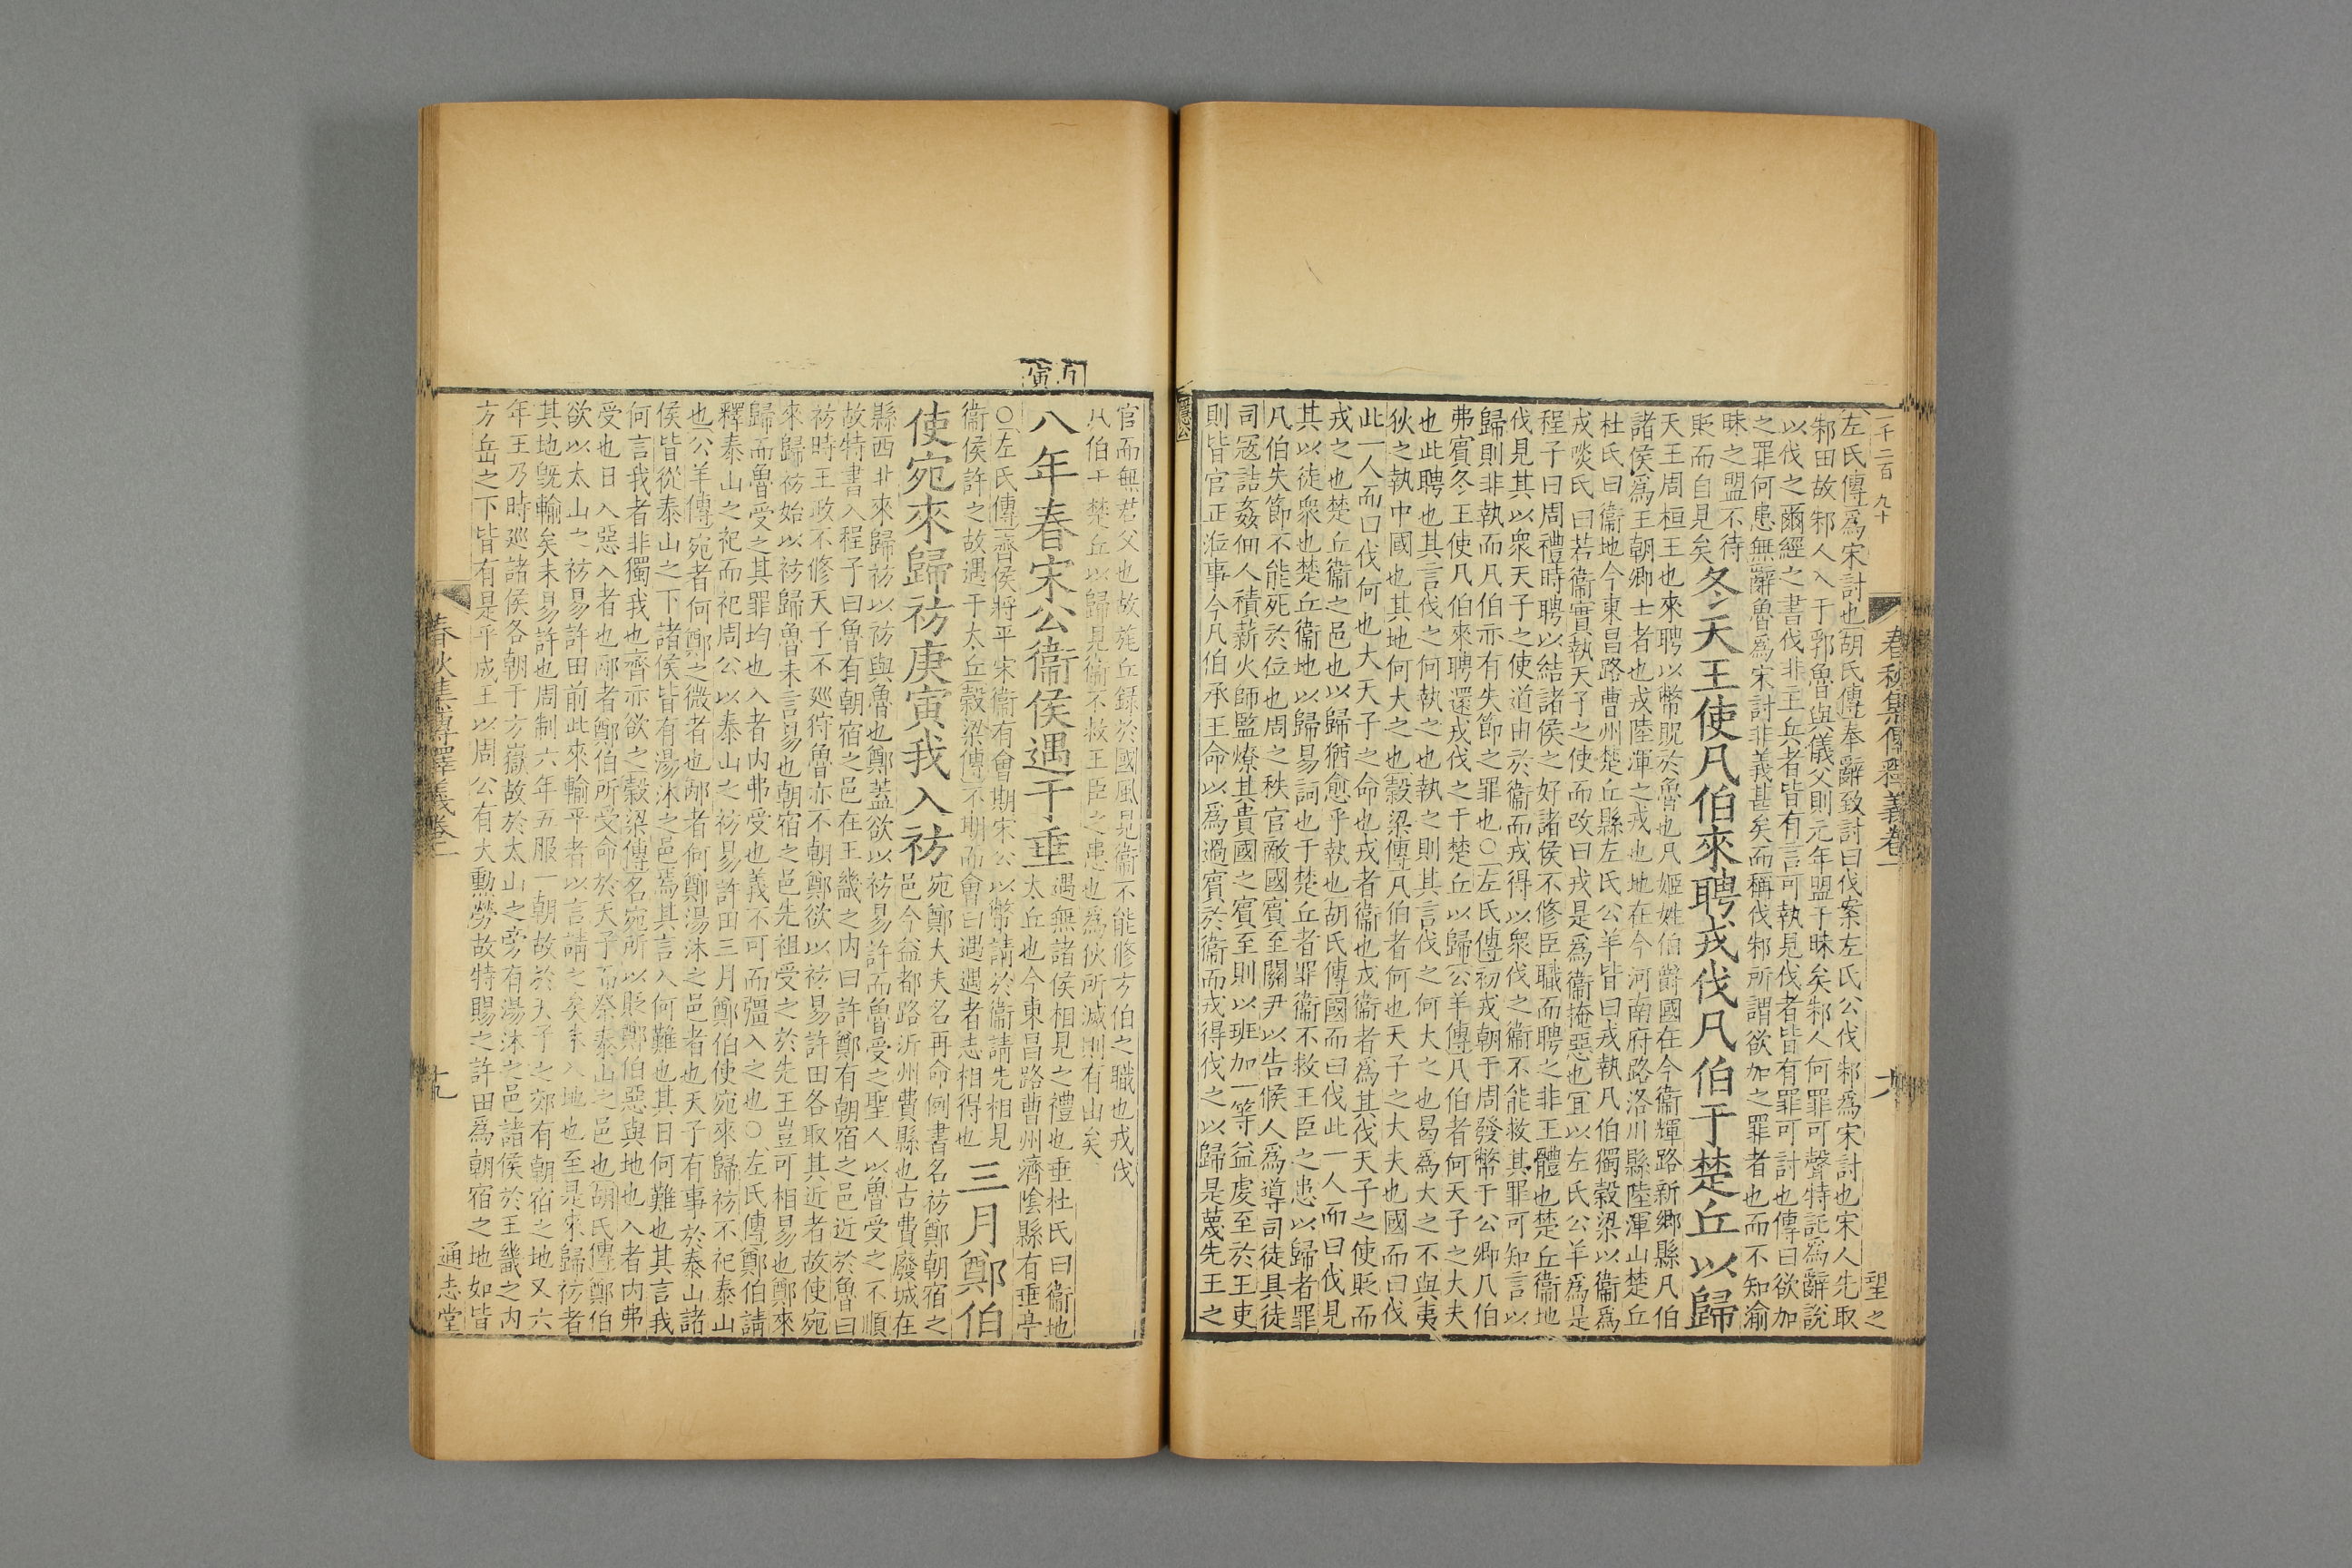 一千二百 九十
春秋集傳釋義卷一
望之
左氏傳爲宋討也胡氏傳奉辭致討曰伐案左氏公伐邾爲宋討也宋人先取
邾田故邾人入于郛魯與儀父則元年盟于眛矣邾人何罪可聲特託爲辭說
以伐之爾經之書伐非主兵者皆有言可執見伐者皆有罪可討也傳曰欲加
之罪何患無辭魯爲宋討非義甚矣而稱伐邾所謂欲加之罪者也而不知渝
眛之盟不待
貶而自見矣
冬天王使凡伯來聘戎伐凡伯于楚丘以歸
天王周桓王也來聘以幣貺於魯也凡姬姓伯爵國在今衞輝路新鄉縣凡伯
諸侯爲王朝卿士者也戎陸渾之戎也地在今河南府路洛川縣陸渾山楚丘
杜氏曰衞地今東昌路曹州楚丘縣左氏公羊皆曰戎執凡伯獨穀梁以衞爲
戎啖氏曰若衞實執天子之使而改曰戎是爲衞掩惡也宜以左氏公羊爲是
程子曰周禮時聘以結諸侯之好諸侯不修臣職而聘之非王體也楚丘衞地
伐見其以衆天子之使道由於衞而戎得以衆伐之衞不能救其罪可知言以
歸則非執而凡伯亦有失節之罪也○左氏傳初戎朝于周發幣于公卿凡伯
弗賓冬王使凡伯來聘還戎伐之于楚丘以歸公羊傳凡伯者何天子之大夫
也此聘也其言伐之何執之也執之則其言伐之何大之也曷爲大之不與夷
狄之執中國也其地何大之也穀梁傳凡伯者何也天子之大夫也國而曰伐
此一人而曰伐何也大天子之命也戎者衞也戎衞者爲其伐天子之使貶而
戎之也楚丘衞之邑也以歸猶愈乎執也胡氏傳國而曰伐此一人而曰伐見
其以徒衆也楚丘衞地以歸易詞也于楚丘者罪衞不救王臣之患以歸者罪
凡伯失節不能死於位也周之秩官敵國賓至關尹以告候人爲導司徒具徒
司寇詰姦佃人積薪火師監燎其貴國之賓至則以班加一等益虔至於王吏
則皆官正涖事今凡伯承王命以爲過賓於衞而戎得伐之以歸是蔑先王之
官而無君父也故旄丘錄於國風見衞不能修方伯之職也戎伐
凡伯于楚丘以歸見衞不救王臣之患也爲狄所滅則有由矣
八年春宋公衞侯遇于垂
遇無諸侯相見之禮也垂杜氏曰衞地
太丘也今東昌路曹州濟陰縣有垂亭
○左氏傳齊侯將平宋衞有會期宋公以幣請於衞請先相見
衞侯許之故遇于太丘穀梁傳不期而會曰遇遇者志相得也
三月鄭伯
使宛來歸祊庚寅我入祊
宛鄭大夫名再命例書名祊鄭朝宿之
邑今益都路沂州費縣也古費廢城在
縣西北來歸祊以祊與魯也鄭蓋欲以祊易許而魯受之聖人以魯受之不順
故特書入程子曰魯有朝宿之邑在王畿之内曰許鄭有朝宿之邑近於魯曰
祊時王政不修天子不廵狩魯亦不朝鄭欲以祊易許田各取其近者故使宛
來歸祊始以祊歸魯未言易也朝宿之邑先祖受之於先王豈可相易也鄭來
歸而魯受之其罪均也入者内弗受也義不可而彊入之也○左氏傳鄭伯請
釋泰山之祀而祀周公以泰山之祊易許田三月鄭伯使宛來歸祊不祀泰山
也公羊傳宛者何鄭之微者也邴者何鄭湯沐之邑者也天子有事於泰山諸
侯皆從泰山之下諸侯皆有湯沐之邑焉其言入何難也其日何難也其言我
何言我者非獨我也齊亦欲之穀梁傳名宛所以貶鄭伯惡與地也入者内弗
受也日入惡入者也邴者鄭伯所受命於天子而祭泰山之邑也胡氏傳鄭伯
欲以太山之祊易許田前此來輸平者以言請之矣未入地也至是來歸祊者
其地旣輸矣未易許也周制六年五服一朝故於天子之郊有朝宿之地又六
年王乃時廵諸侯各朝于方嶽故於太山之旁有湯沐之邑諸侯於王畿之内
方岳之下皆有是乎成王以周公有大勳勞故特賜之許田爲朝宿之地如皆
春秋集傳釋義卷一
十九
通志堂